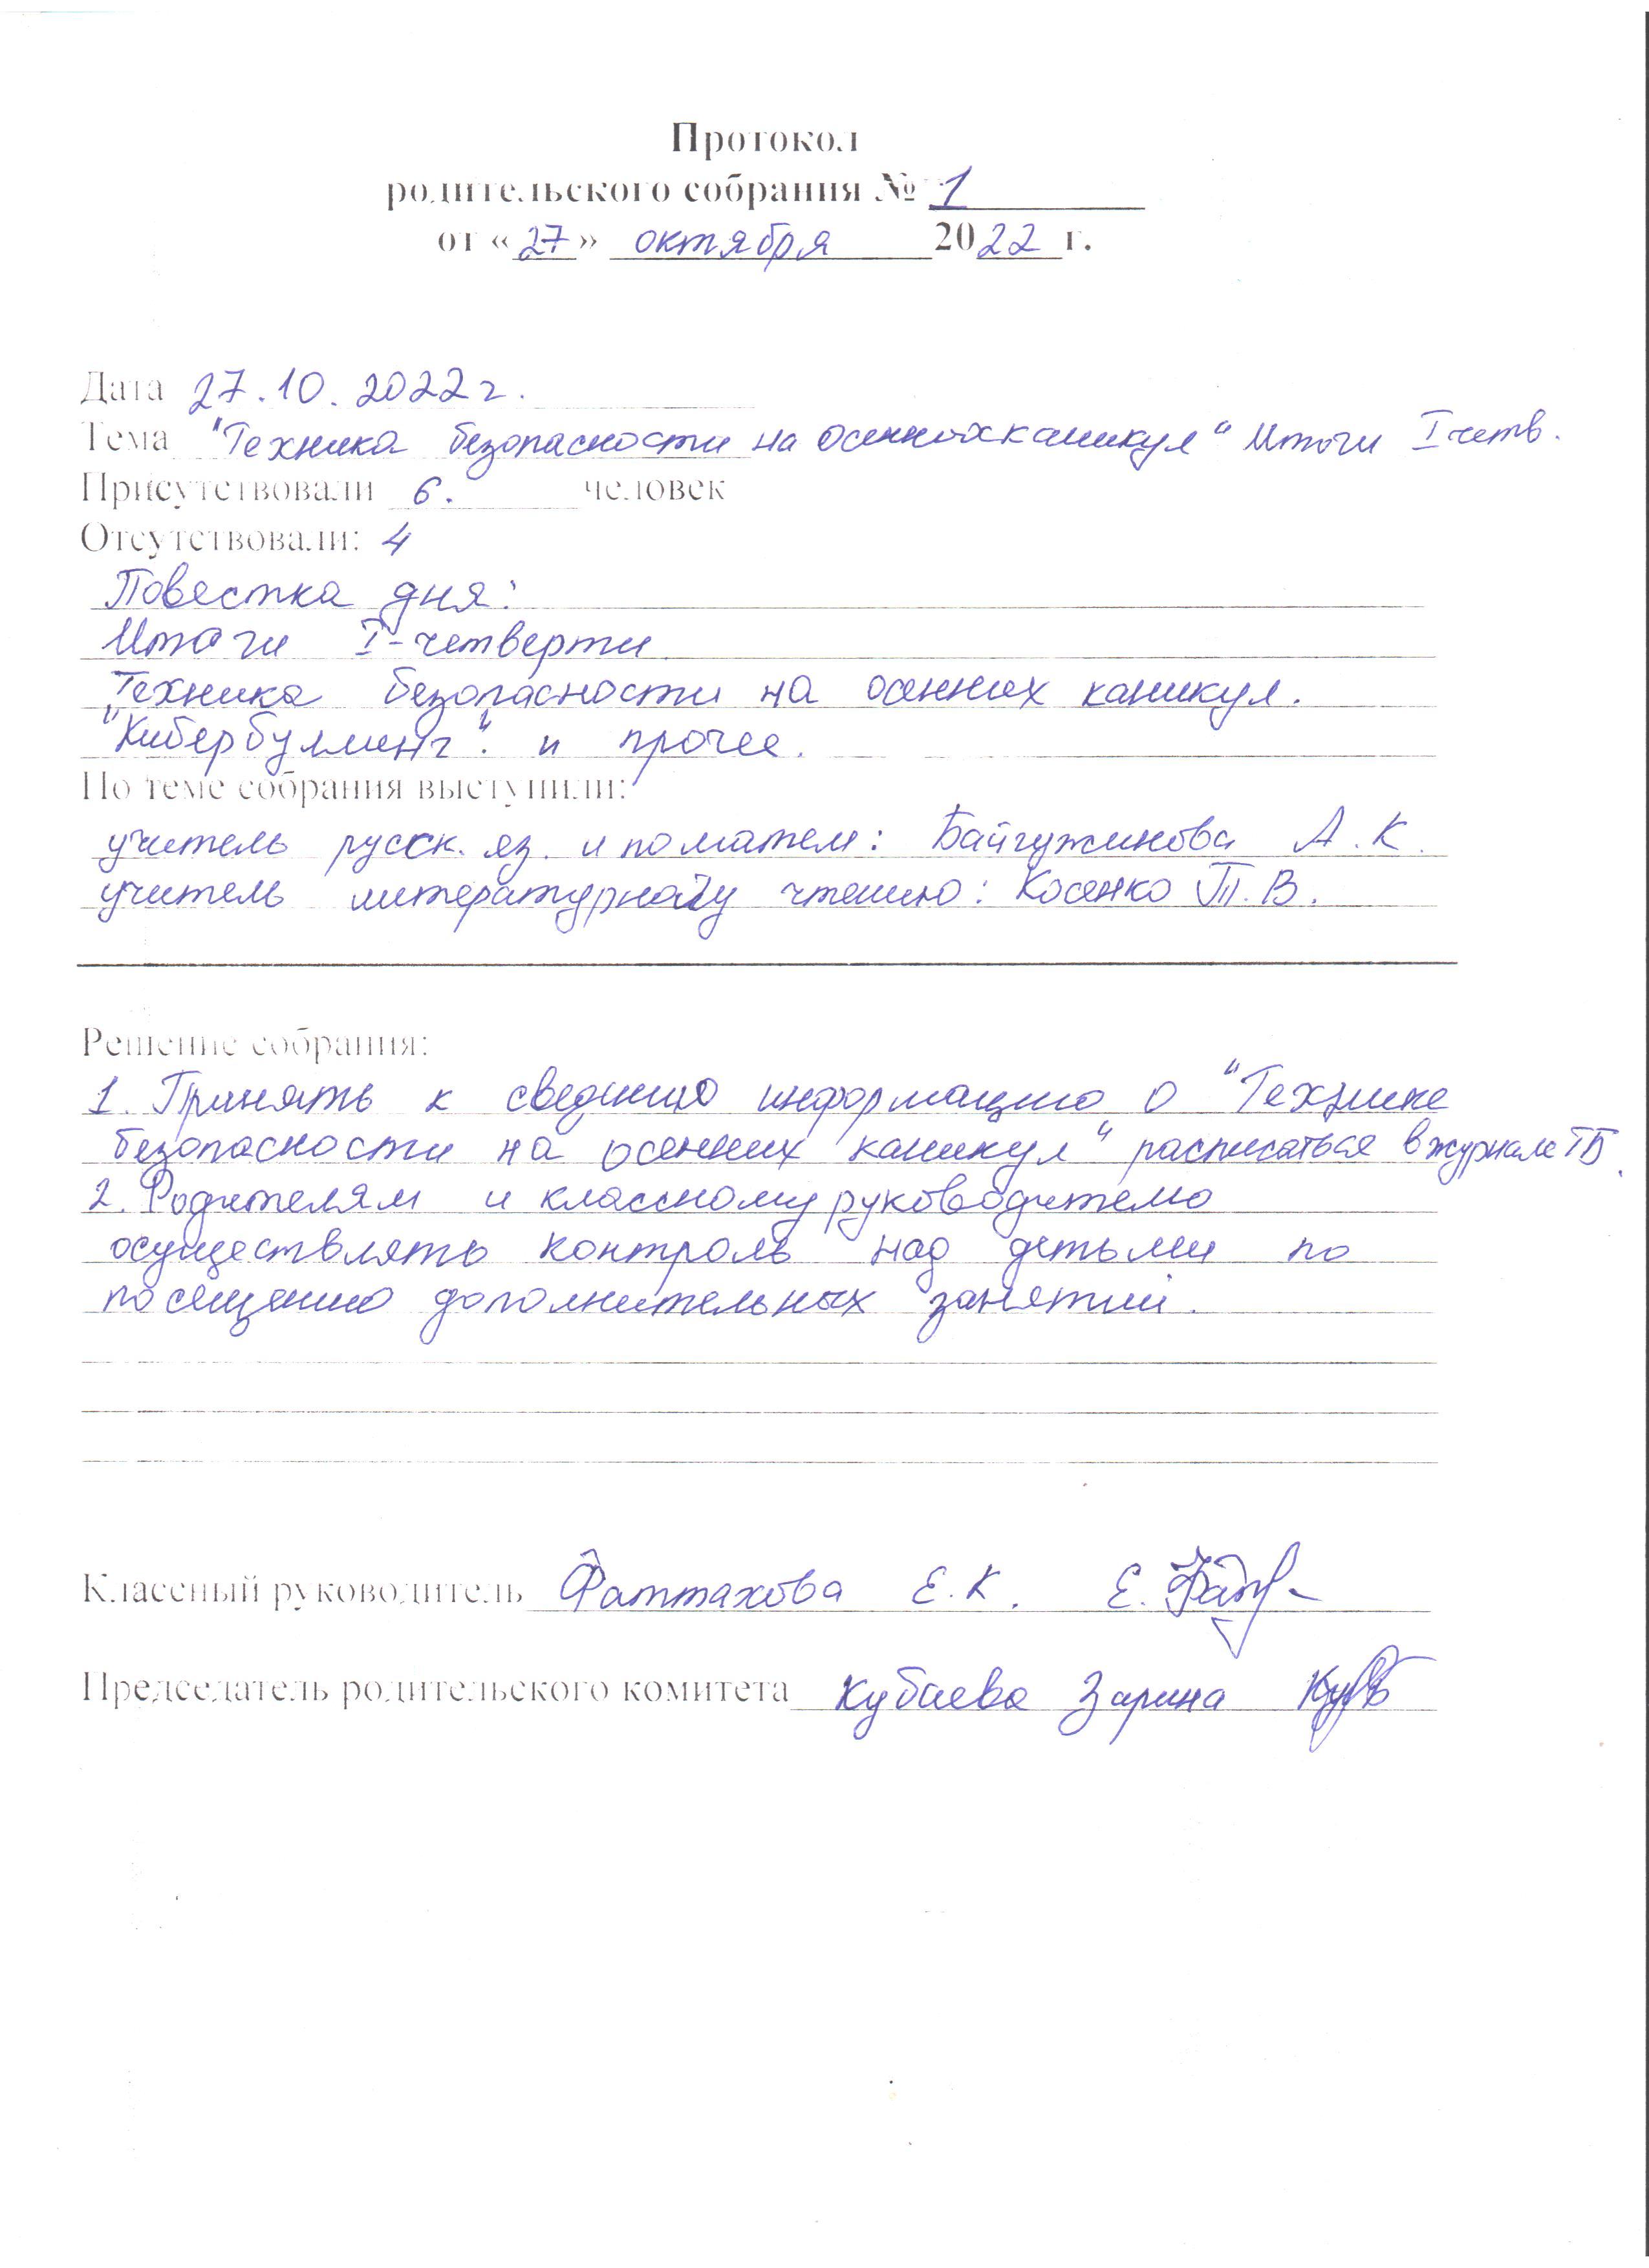 Протокол
родительского собрания № 1
от «27» октября 2022 г.
Дата 27.10.2022 г.
Тема "Техника безопасности на осенних каникул" Итоги I четв.
Присутствовали 6. человек
Отсутствовали: 4
Повестка дня:
Итоги I-четверти
Техника безопасности на осенних каникул.
"Кибербуллинг". и прочее.
По теме собрания выступили:
учитель русск. яз. и по матем: Байгужинова А.К.
учитель литературному чтению: Косенко Т.В.
Решение собрания:
1. Принять к сведению информацию о "Технике
безопасности на осенних каникул" расписаться в журнале ТБ.
2. Родителям и классному руководителю
осуществлять контроль над детьми по
посещению дополнительных занятий.
Классный руководитель Фаттахова Е.К.
Председатель родительского комитета Кубаева Зарина